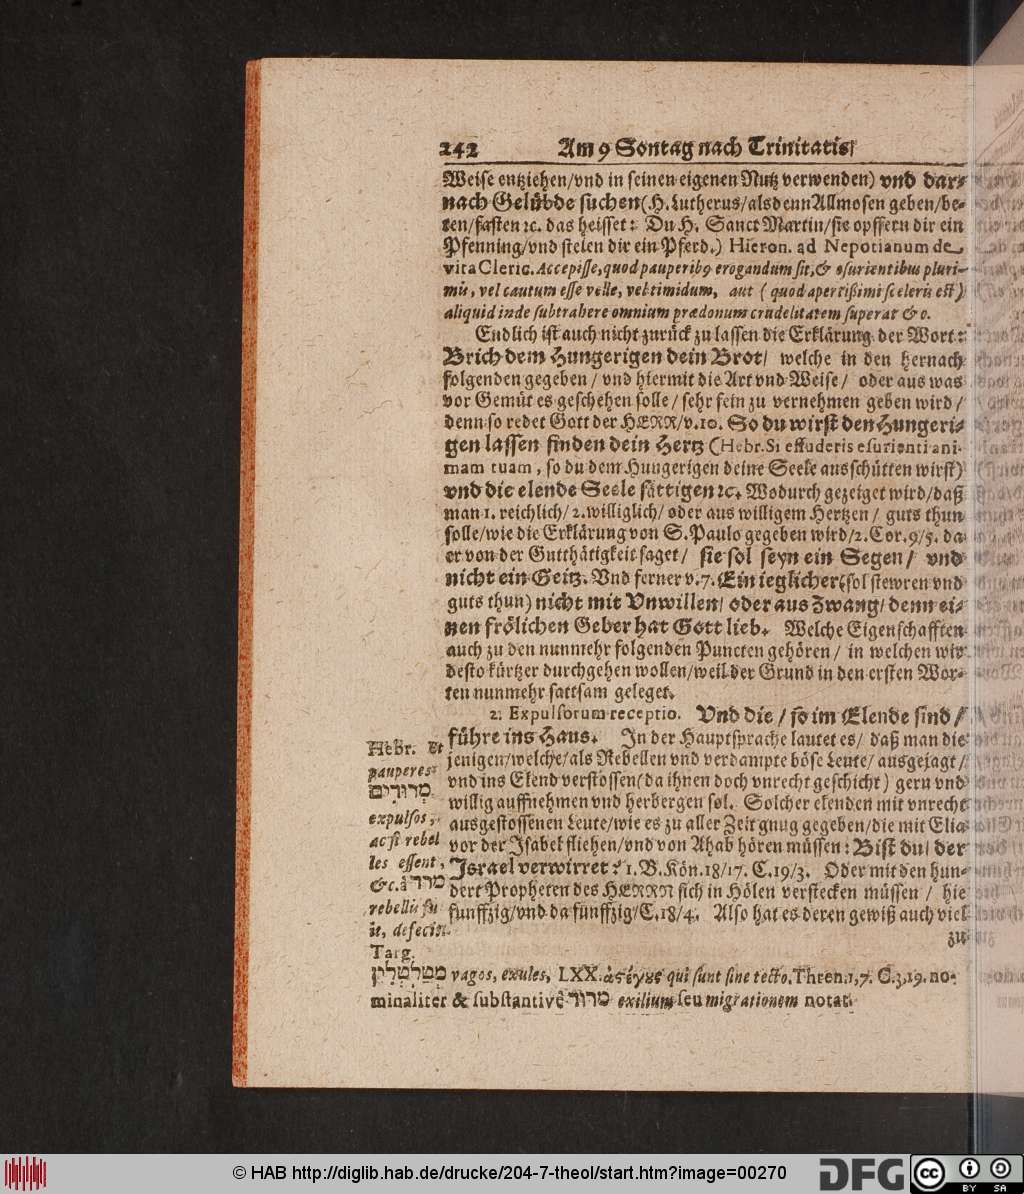 242 Am 9 Sontag nach Trinitatis/
Weise entziehen/vnd in seinen eigenen Nutz verwenden) vnd dar-
nach Gelübde suchen (H. Lutherus/als denn Allmosen geben/be-
ten/fasten ꝛc. das heisset: Du H. Sanct Martin/sie opffern dir ein
Pfenning/vnd stelen dir ein Pferd.) Hieron. ad Nepotianum de
vita Cleric. Accepisse, quod pauperib9 erogandum sit, & esurientibus pluri-
mis, vel cautum esse velle, vel timidum, aut (quod apertißimi sceleris est)
aliquid inde subtrahere omnium prædonum crudelitatem superat &c.
Endlich ist auch nicht zurück zu lassen die Erklärung der Wort:
Brich dem Hungerigen dein Brot/ welche in den hernach
folgenden gegeben/ vnd hiermit die Art vnd Weise/ oder aus was
vor Gemüt es geschehen solle/ sehr fein zu vernehmen geben wird/
denn so redet Gott der HERR/v.10. So du wirst den Hungeri-
gen lassen finden dein Hertz (Hebr. Si effuderis esurienti ani-
mam tuam, so du dem Hungerigen deine Seele ausschütten wirst)
vnd die elende Seele sättigen ꝛc. Wodurch gezeiget wird/daß
man 1. reichlich/ 2. williglich/ oder aus willigem Hertzen/ guts thun
solle/wie die Erklärung von S. Paulo gegeben wird/2. Cor. 9/5. da
er von der Gutthätigkeit saget/ sie sol seyn ein Segen/ vnd
nicht ein Geitz. Vnd ferner v.7. Ein ieglicher (sol stewren vnd
guts thun) nicht mit Vnwillen/ oder aus Zwang/ denn ei-
nen frölichen Geber hat Gott lieb. Welche Eigenschafften
auch zu den nunmehr folgenden Puncten gehören/ in welchen wir
desto kürtzer durchgehen wollen/weil der Grund in den ersten Wor-
ten nunmehr sattsam geleget.
2. Expulsorum receptio. Vnd die/ so im Elende sind/
führe ins Haus. In der Hauptsprache lautet es/ daß man die
jenigen/welche/als Rebellen vnd verdampte böse Leute/ ausgejagt/
vnd ins Elend verstossen (da ihnen doch vnrecht geschicht) gern vnd
willig auffnehmen vnd herbergen sol. Solcher elenden mit vnrecht
ausgestossenen Leute/wie es zu aller Zeit gnug gegeben/die mit Elia
vor der Isabel fliehen/vnd von Ahab hören müssen: Bist du/ der
Israel verwirret? 1. B. Kön. 18/17. C. 19/3. Oder mit den hun-
dert Propheten des HERRN sich in Hölen verstecken müssen/ hie
funffzig/vnd da funffzig/C. 18/4. Also hat es deren gewiß auch viel
zu
Hebr. Et
pauperes
מְרוּדִים
expulsos,
ac si rebel
les essent,
&c. à מרד
rebellis fu
it, defecit.
Targ.
מְטַלְטְלִין vagos, exules, LXX. ἀστέγους qui sunt sine tecto. Thren. 1, 7. C. 3, 19. no-
minaliter & substantivè מרוד exilium seu migrationem notat.
© HAB http://diglib.hab.de/drucke/204-7-theol/start.htm?image=00270
DFG
cc BY SA